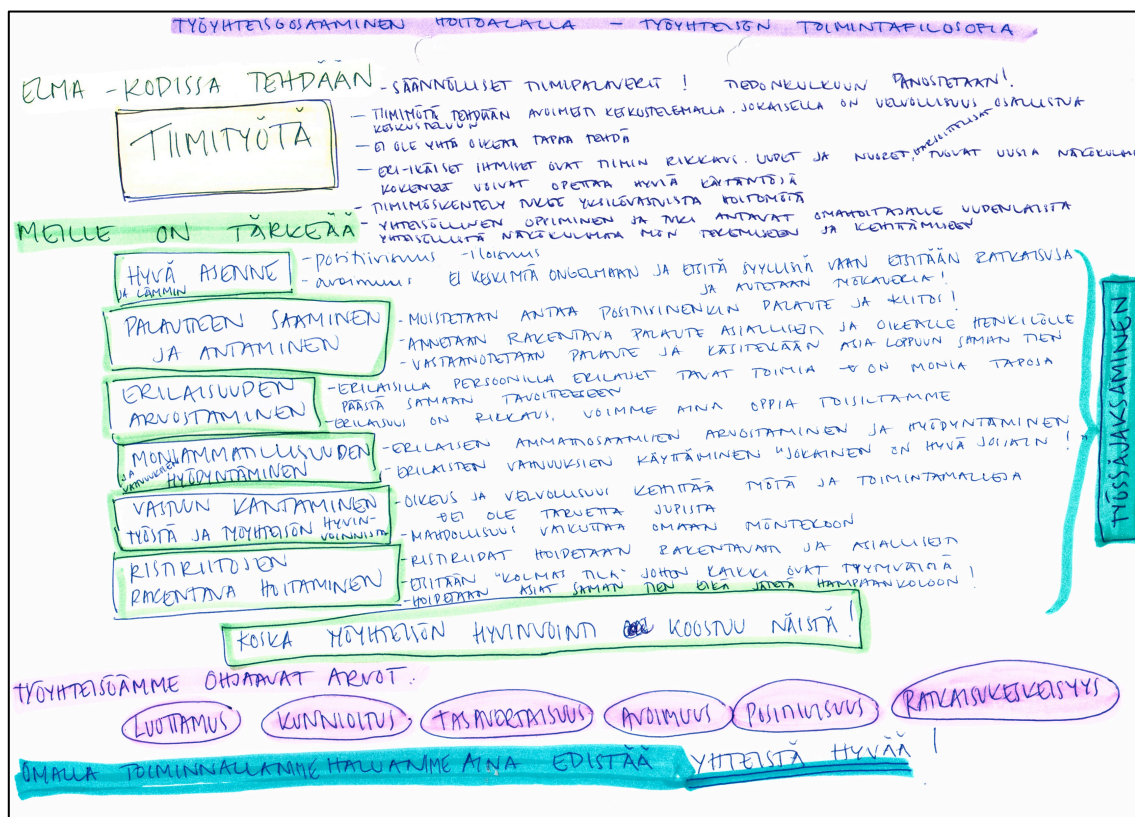 TYÖYHTEISÖOSAAMINEN HOITOALALLA – TYÖYHTEISÖN TOIMINTAFILOSOFIA
ELMA -KODISSA TEHDÄÄN
TIIMITYÖTÄ
- SÄÄNNÖLLISET TIIMIPALAVERIT ! TIEDONKULKUUN PANOSTETAAN!
- TIIMITYÖTÄ TEHDÄÄN AVOIMESTI KESKUSTELEMALLA. JOKAISELLA ON VELVOLLISUUS OSALLISTUA
KESKUSTELUUN
- EI OLE YHTÄ OIKEAA TAPAA TEHDÄ
- ERI-IKÄISET IHMISET OVAT TIIMIN RIKKAUS. UUDET JA NUORET, HARJOITTELIJAT TUOVAT UUSIA NÄKÖKULMI
KOKENEET VOIVAT OPETTAA HYVIÄ KÄYTÄNTÖJÄ
- TIIMITYÖSKENTELY TUKEE YKSILÖVASTUISTA HOITOTYÖTÄ
- YHTEISÖLLINEN OPPIMINEN JA TUKI ANTAVAT OMAHOITAJALLE UUDENLAISTA
YHTEISÖLLISTÄ NÄKÖKULMAA TYÖN TEKEMISEEN JA KEHITTÄMISEEN
MEILLE ON TÄRKEÄÄ
HYVÄ ASENNE
JA LÄMMIN
- positiivisuus - iloisuus
- avoimuus EI KESKITYTÄ ONGELMAAN JA ETSITÄ SYYLLISIÄ VAAN ETSITÄÄN RATKAISUJA
JA AUTETAAN TYÖKAVERIA!
PALAUTTEEN SAAMINEN
JA ANTAMINEN
- MUISTETAAN ANTAA POSITIIVINENKIN PALAUTE JA KIITOS!
- ANNETAAN RAKENTAVA PALAUTE ASIALLISESTI JA OIKEALLE HENKILÖLLE
- VASTAANOTETAAN PALAUTE JA KÄSITELLÄÄN ASIA LOPPUUN SAMAN TIEN
ERILAISUUDEN
ARVOSTAMINEN
- ERILAISILLA PERSOONILLA ERILAISET TAVAT TOIMIA → ON MONIA TAPOJA
PÄÄSTÄ SAMAAN TAVOITTEESEEN
- ERILAISUUS ON RIKKAUS, VOIMME AINA OPPIA TOISILTAMME
MONIAMMATILLISUUDEN
JA VAHVUUKSIEN HYÖDYNTÄMINEN
- ERILAISEN AMMATTIOSAAMISEN ARVOSTAMINEN JA HYÖDYNTÄMINEN
- ERILAISTEN VAHVUUKSIEN KÄYTTÄMINEN "JOKAINEN ON HYVÄ JOSSAIN!"
VASTUUN KANTAMINEN
TYÖSTÄ JA TYÖYHTEISÖN HYVIN-
VOINNISTA
- OIKEUS JA VELVOLLISUUS KEHITTÄÄ TYÖTÄ JA TOIMINTAMALLEJA
→ EI OLE TARVETTA JUPISTA
- MAHDOLLISUUS VAIKUTTAA OMAAN TYÖNTEKOON
RISTIRIITOJEN
RAKENTAVA HOITAMINEN
- RISTIRIIDAT HOIDETAAN RAKENTAVASTI JA ASIALLISESTI
- ETSITÄÄN "KOLMAS TILA" JOHON KAIKKI OVAT TYYTYVÄISIÄ
- HOIDETAAN ASIAT SAMAN TIEN EIKÄ JÄTETÄ HAMPAANKOLOON!
TYÖSSÄJAKSAMINEN
KOSKA TYÖYHTEISÖN HYVINVOINTI KOOSTUU NÄISTÄ!
TYÖYHTEISÖÄMME OHJAAVAT ARVOT:
LUOTTAMUS KUNNIOITUS TASAVERTAISUUS AVOIMUUS POSITIIVISUUS RATKAISUKESKEISYYS
OMALLA TOIMINNALLAMME HALUAMME AINA EDISTÄÄ YHTEISTÄ HYVÄÄ!